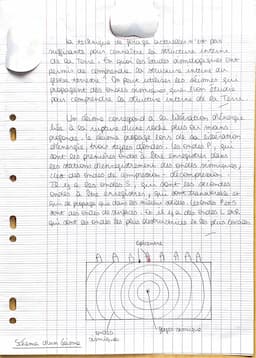 La technique de forage actuelle n'est pas
suffisante pour connaître la structure interne
de la Terre. En quoi les ondes sismologiques ont
permis de comprendre la structure interne du
globe terrestre ? On peut utiliser les séismes qui
propagent des ondes sismiques que l'on étudie
pour comprendre la structure interne de la Terre.
Un séisme correspond à la libération d'énergie
liée à la rupture d'une roche plus ou moins
profonde. Le séisme propage lors de sa libération
d'énergie, trois types d'ondes. Les ondes P, qui
sont les premières ondes à être enregistrées dans
les stations d'enregistrement des ondes sismiques,
c'est des ondes de compression - décompression.
Il y a les ondes S, qui sont les secondes
ondes à être enregistrées, qui sont transversales et
qui ne propage que dans les milieux solides. Les ondes P et S
sont des ondes de
Et il y a des ondes L
qui sont les ondes les plus destructrices et les plus lentes.
épicentre
ondes
sismiques
foyer sismique
Schéma d'un séisme